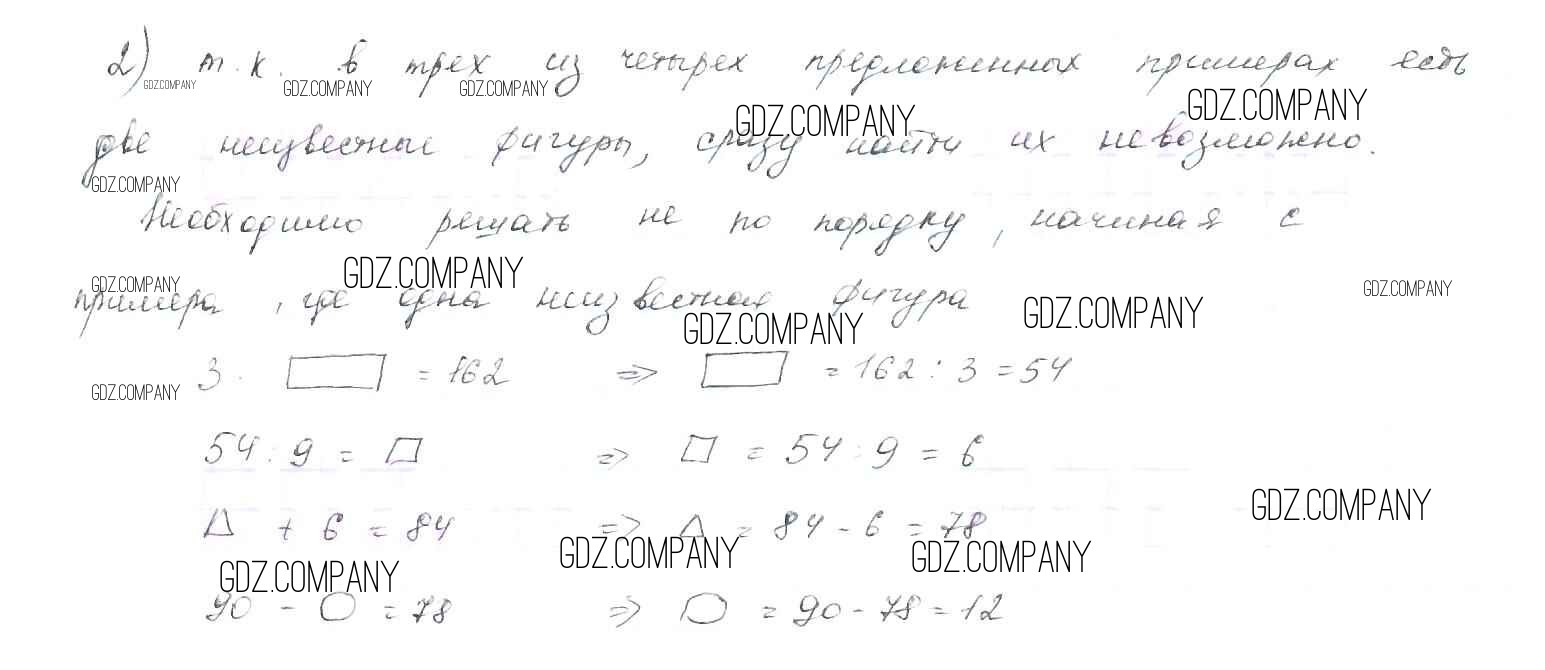 2) т.к. в трех из четырех предложенных примерах есть
GDZ.COMPANY GDZ.COMPANY GDZ.COMPANY GDZ.COMPANY GDZ.COMPANY
две неизвестные фигуры, сразу найти их невозможно.
GDZ.COMPANY
Необходимо решать не по порядку, начиная с
GDZ.COMPANY GDZ.COMPANY GDZ.COMPANY
примера, где одна неизвестная фигура
GDZ.COMPANY GDZ.COMPANY
3 · ▭ = 162 => ▭ = 162 : 3 = 54
GDZ.COMPANY
54 : 9 = □ => □ = 54 : 9 = 6
GDZ.COMPANY
△ + 6 = 84 => △ = 84 - 6 = 78
GDZ.COMPANY GDZ.COMPANY GDZ.COMPANY
90 - ○ = 78 => ○ = 90 - 78 = 12